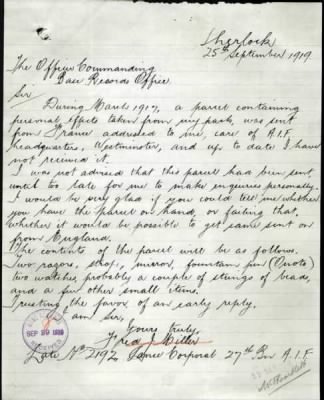 Sherlock
25th September 1919
The Officer Commanding
Base Records Office
Sir
During March 1917, a parcel containing
personal effects taken from my pack, was sent
from France addressed to me, care of A.I.F.
headquarters, Westminster, and up to date I have
not received it.
I was not advised that this parcel had been sent,
until too late for me to make inquiries personally.
I would be very glad if you could tell me whether
you have the parcel on hand, or failing that,
whether it would be possible to get same sent on
from England.
The contents of the parcel will be as follows.
Two razors, strop, mirror, fountain pen (Onoto)
two watches, probably a couple of strings of beads,
and a few other small items.
Trusting the favor of an early reply,
I am Sir,
Yours truly,
Fred Miller
Late No 2192 Lance Corporal 27th Bn A.I.F.
SEP 29 1919
RECEIVED